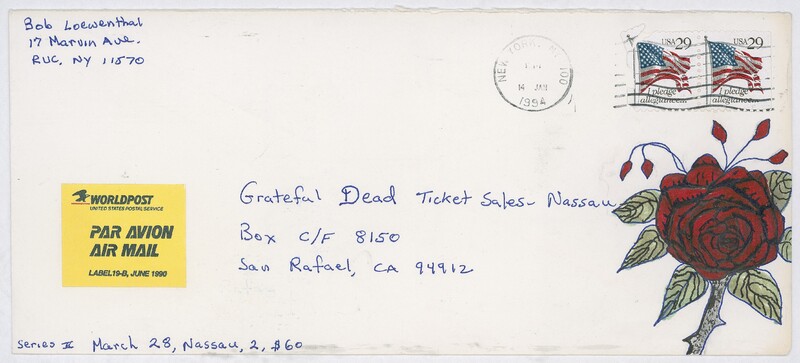 Bob Loewenthal
17 Marvin Ave.
RVC, NY 11570
NEW YORK, NY 100
14 JAN
1994
USA 29
I pledge
allegiance...
USA 29
I pledge
allegiance...
WORLDPOST
UNITED STATES POSTAL SERVICE
PAR AVION
AIR MAIL
LABEL 19-B, JUNE 1990
Grateful Dead Ticket Sales- Nassau
Box C/F 8150
San Rafael, CA 94912
Series II March 28, Nassau, 2, $60